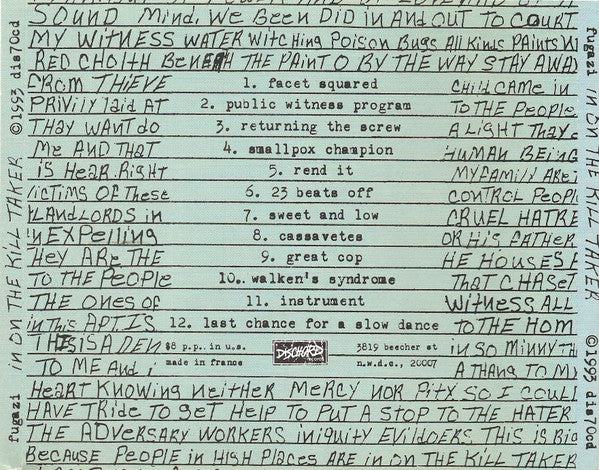 SOUND Mind. We Been DiD in And out To COURT
MY WiTNESS WATER WiTCHing Poison Bugs All Kinds PAints
RED CHOiTH BeneATH THE PAinT O BY THE WAY STAY AWAY
FROM THieve
PRiVily laiD AT
THAY WANT do
Me AND THAT
iS HeAR. RigHT
VICTiMS OF THese
LANDLORDS in
EXPelling
THEY ARE THE
TO THE PEOPLE
THE ONES OF
in THis APT. IS
THIS iS A DEN
TO ME AnD i
1. facet squared
2. public witness program
3. returning the screw
4. smallpox champion
5. rend it
6. 23 beats off
7. sweet and low
8. cassavetes
9. great cop
10. walken's syndrome
11. instrument
12. last chance for a slow dance
$8 p.p. in u.s.
made in france
DISCHORD
records
3819 beecher st
n.w.d.c., 20007
CHilD CAMe in
TO THE PEOPle
A LiGHT THAY
HUMAN BEING
MY FAMily ARE
CONTROL PEOPl
CRUEL HATRE
OR His FATHER
HE HOUSES
THAT CHASET
WiTNess ALL
TO THE HOM
in SO MinnY TH
A THANG TO MY
HeART KNOWing NeiTHER MeRCY NOR PiTY SO I COULD
HAVE TRiDe To geT HELP TO PUT A STOP TO THE HATER
THE ADVERSARY WORKERS iniQuiTY EVilDOERS THiS iS Big
BecAuse PeoPle in HigH PlAces ARE in ON THE Kill TAKER
fugazi IN ON THE KILL TAKER ©1993 dis70cd
fugazi IN ON THE KILL TAKER ©1993 dis70cd